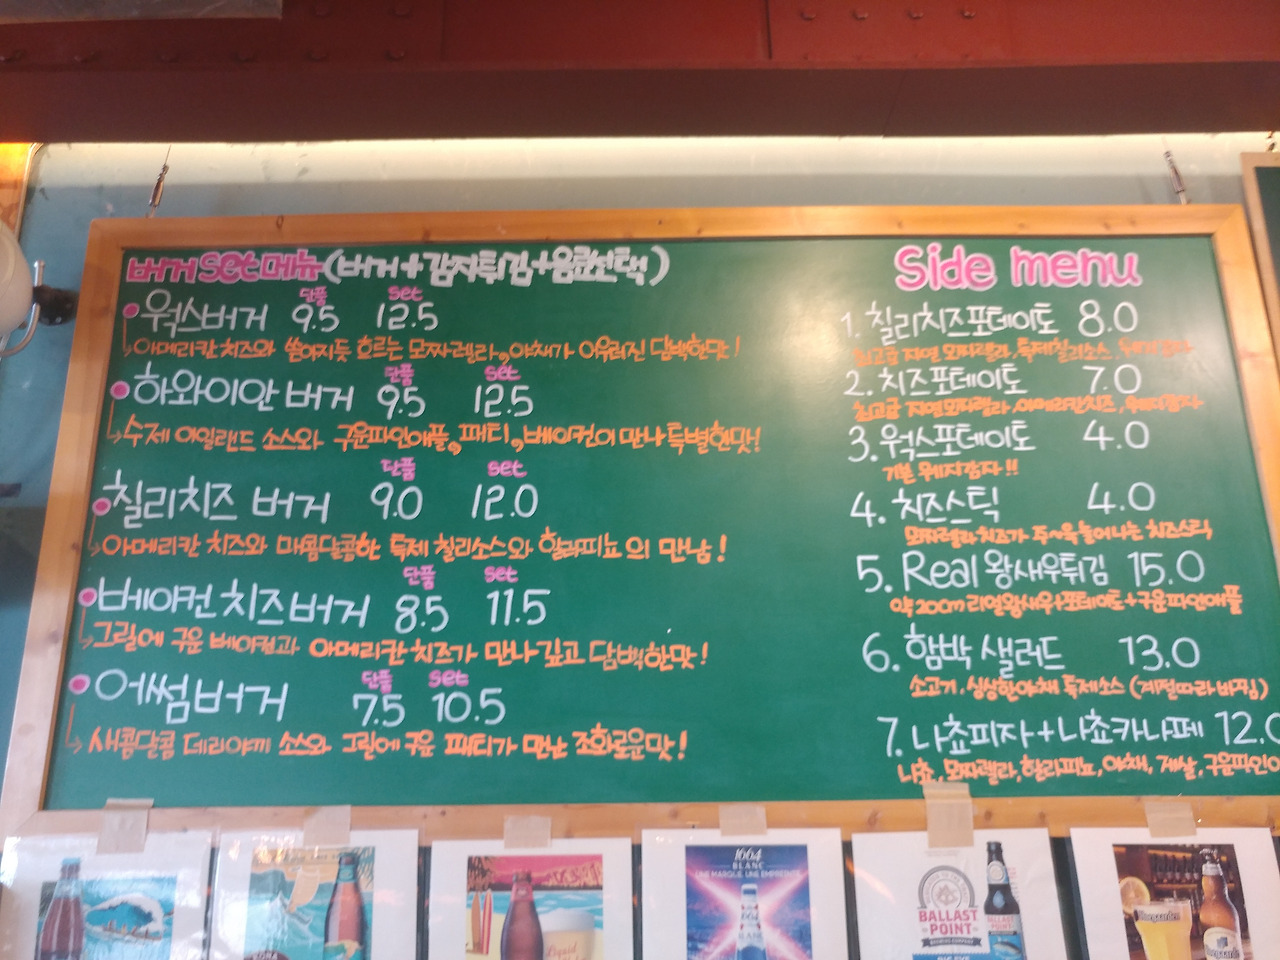 버거 set 메뉴 (버거+감자튀김+음료선택)
단품 set
웍스버거 9.5 12.5
아메리칸 치즈와 쏟아지듯 흐르는 모짜렐라, 야채가 어우러진 담백한맛!
단품 set
하와이안 버거 9.5 12.5
수제 아일랜드 소스와 구운파인애플, 패티, 베이컨이 만나 특별한맛!
단품 set
칠리치즈 버거 9.0 12.0
아메리칸 치즈와 매콤달콤한 특제 칠리소스와 할라피뇨의 만남!
단품 set
베이컨 치즈버거 8.5 11.5
그릴에 구운 베이컨과 아메리칸 치즈가 만나 깊고 담백한맛!
단품 set
어썸버거 7.5 10.5
새콤달콤 데리야끼 소스와 그릴에 구운 패티가 만난 조화로운맛!
Side menu
1. 칠리치즈포테이토 8.0
최고급 자연 모짜렐라, 특제칠리소스, 웨지감자
2. 치즈포테이토 7.0
최고급 자연모짜렐라, 아메리칸치즈, 웨지감자
3. 웍스포테이토 4.0
기본 웨지감자!!
4. 치즈스틱 4.0
모짜렐라 치즈가 주욱 늘어나는 치즈스틱
5. Real 왕새우튀김 15.0
약 20cm 리얼왕새우+포테이토+구운파인애플
6. 함박 샐러드 13.0
소고기, 싱싱한야채 특제소스 (계절따라 바뀜)
7. 나쵸피자+나쵸카나페 12.0
나쵸, 모짜렐라, 할라피뇨, 야채, 게살, 구운파인
1664
BLANC
UNE MARQUE, UNE EMPREINTE
BALLAST
POINT
BIG EYE
Hoegaarden
KONA
Liquid